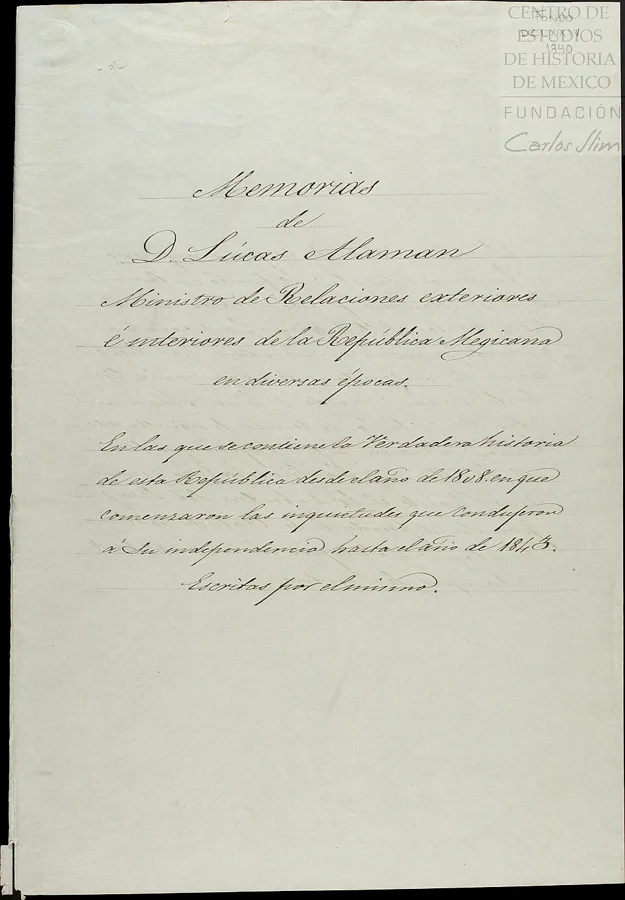 CENTRO DE
ESTUDIOS
DE HISTORIA
DE MEXICO
FUNDACIÓN
Carlos Slim
FONDO
1940
Memorias
de
D. Lúcas Alaman
Ministro de Relaciones exteriores
é interiores de la República Megicana
en diversas épocas.
En las que se contiene la Verdadera historia
de esta República desde el año de 1808. en que
comenzaron las inquietudes que condujeron
á su independencia hasta el año de 1843.
Escritas por el mismo.